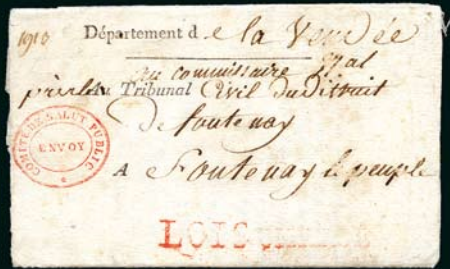 1913
Département de la Vendée
au commissaire nal
près le Au Tribunal Civil du District
de fontenay
A Fontenay le peuple
COMITÉ DE SALUT PUBLIC
ENVOY
LOIS